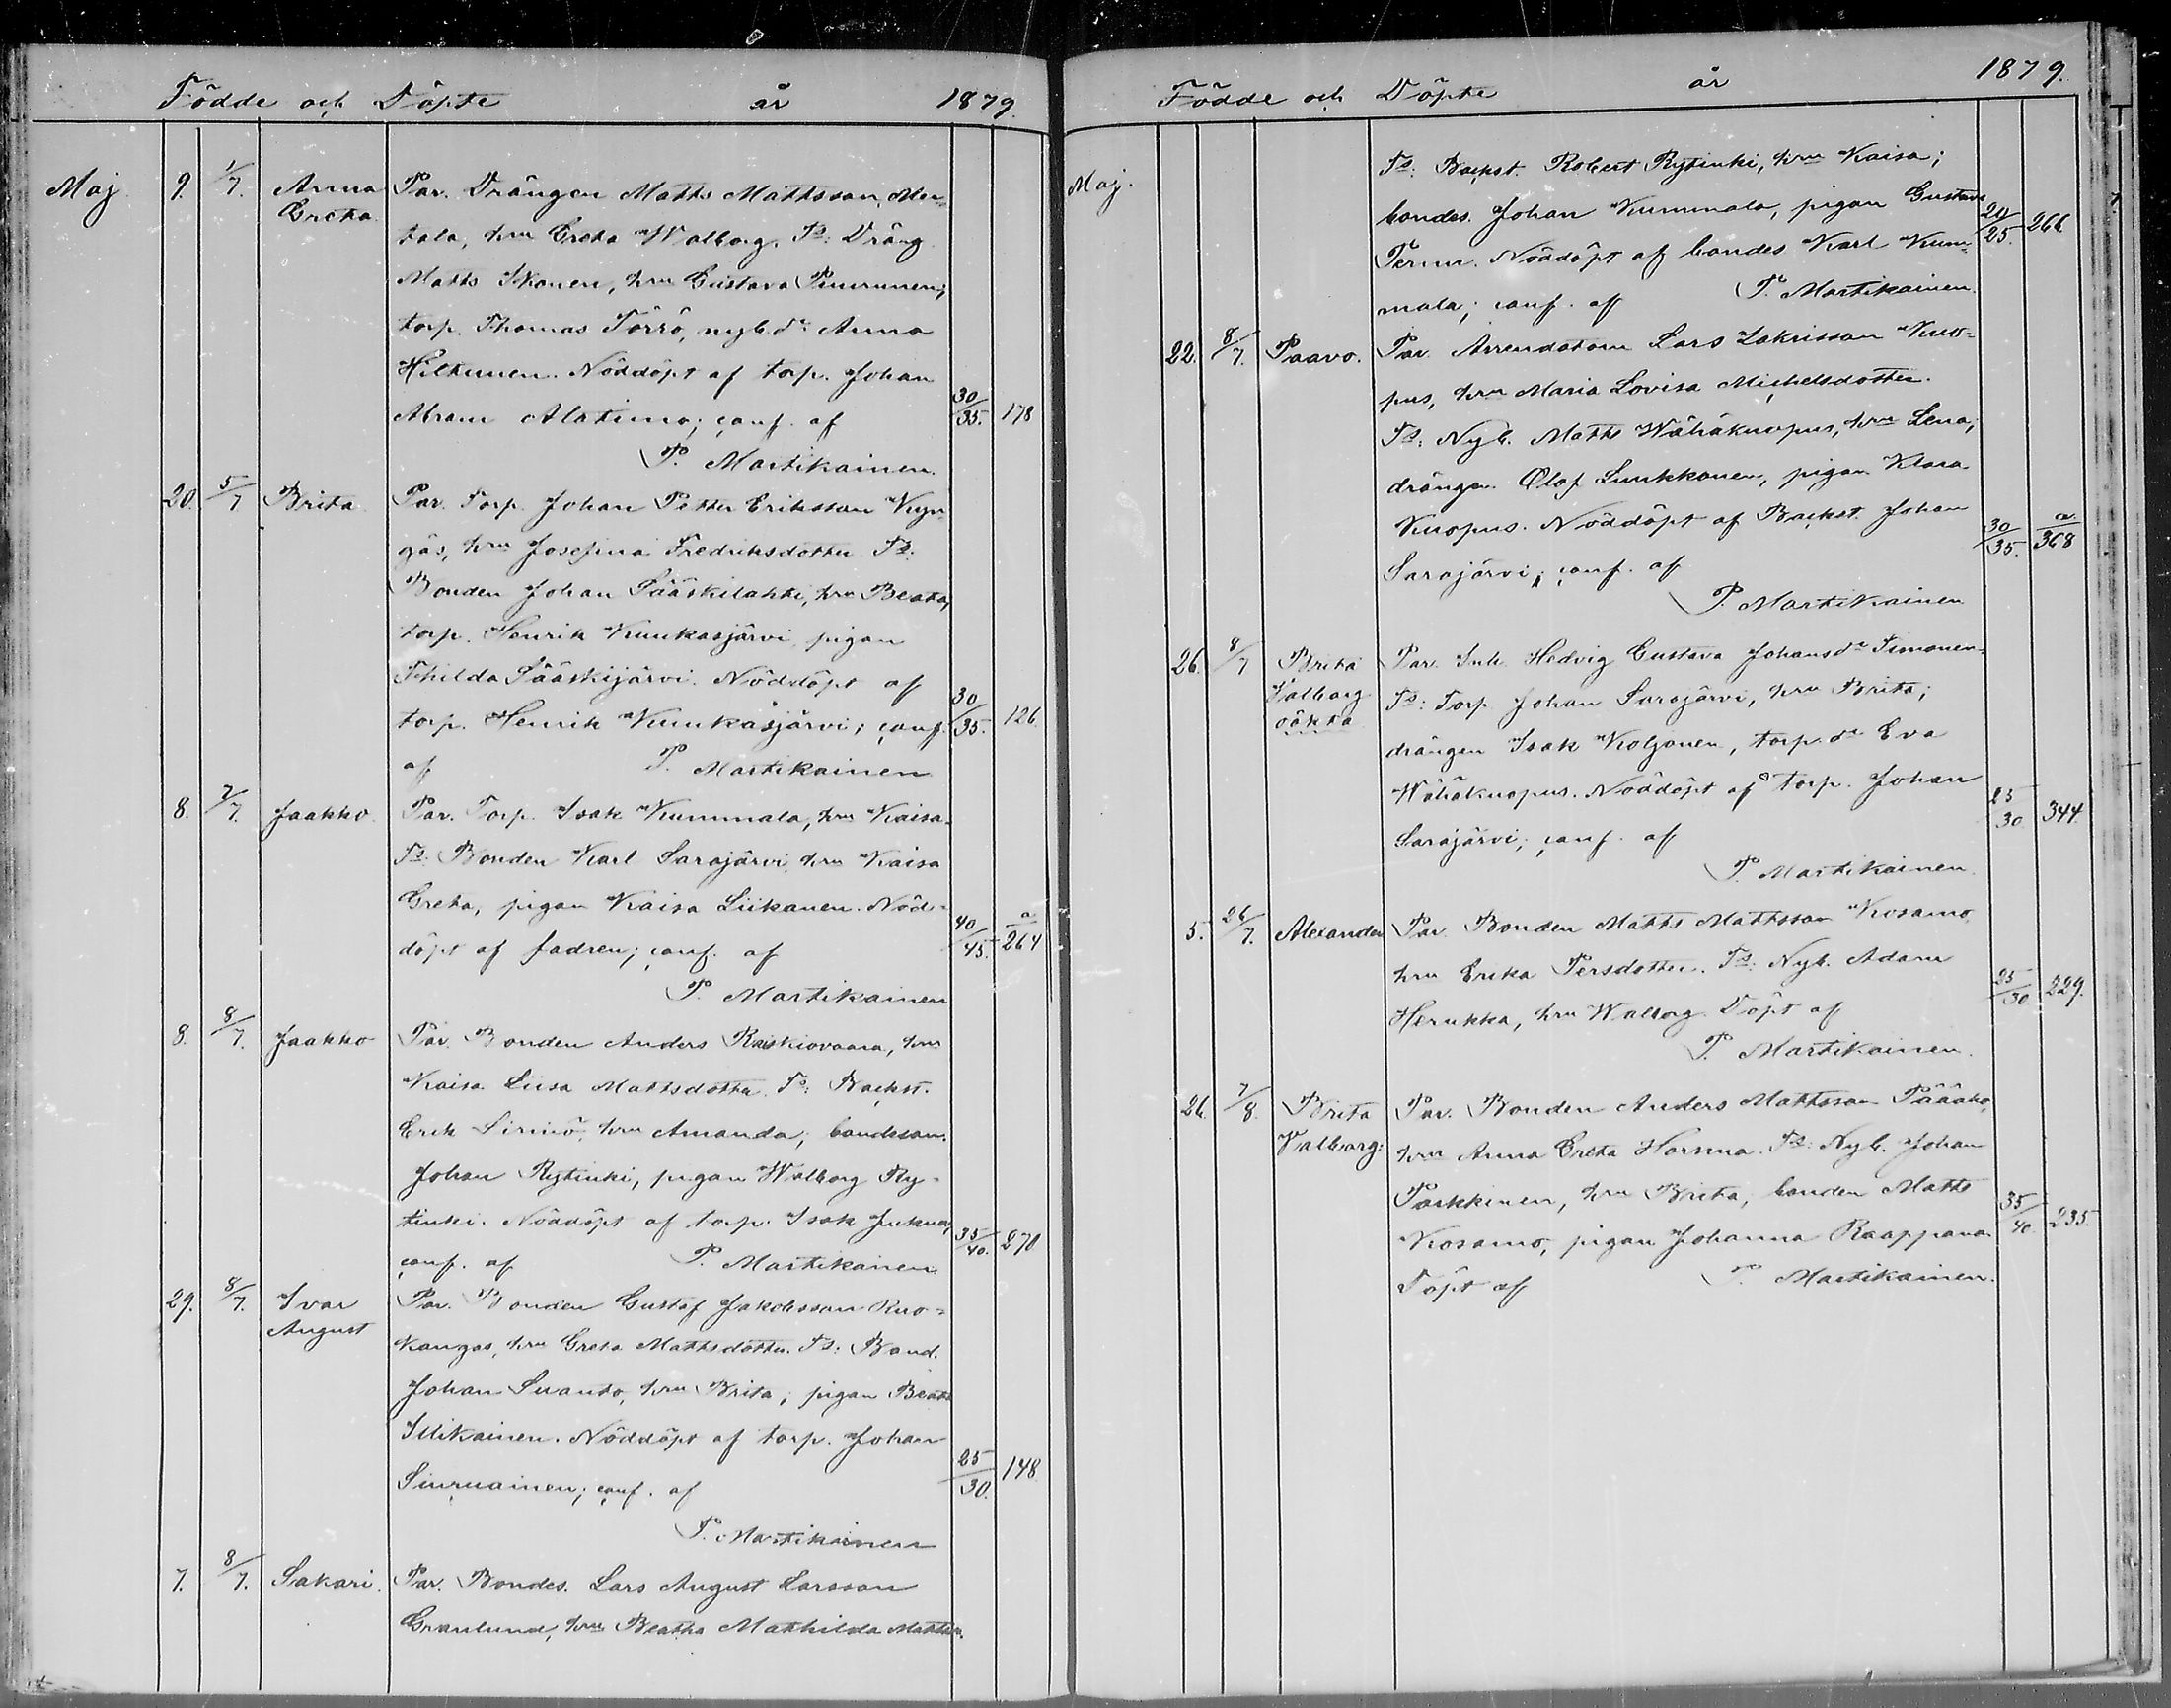 Födde och Döpte år 1879.
Maj 9. 1/7. Anna Par. Drängen Matts Mattsson, Mer-
Greta tala, hru Greta Walborg. Ts: Dräng
Matts Ikonen, hru Gustava Puurunen;
torp. Thomas Törrö, nyb.dr Anna
Hiltunen. Nöddöpt af torp. Johan
Abram Alatimo; conf. af 30/35. 178
P. Martikainen.
20. 5/7 Brita Par. Torp. Johan Petter Eriksson Kyn-
gäs, hru Josefina Fredriksdotter. Ts:
Bonden Johan Sääskilahti, hru Beata,
torp. Henrik Kuukasjärvi, pigan
Thilda Sääskijärvi. Nöddöpt af
torp. Henrik Kuukasjärvi; conf. 30/35. 126
af P. Martikainen
8. 7/7. Jaakko Par. Torp. Isak Kummala, hru Kaisa.
Ts: Bonden Karl Sarajärvi, hru Kaisa
Greta, pigan Kaisa Liikanen. Nöd-
döpt af fadren; conf. af 40/45. a/264
P. Martikainen
8. 8/7. Jaakko Par. Bonden Anders Raiskiovaara, hru
Kaisa Liisa Mattsdotter. Ts: Backst.
Erik Sirniö, hru Amanda; bondeson.
Johan Rytinki, pigan Walborg Ry-
tinki. Nöddöpt af torp. Isak
conf. af P. Martikainen 35/40. 270
29. 8/7. Ivar Par. Bonden Gustaf Jakobsson Ruo-
August kangas, hru Greta Mattsdotter. Ts: Bond.
Johan Suanto, hru Brita; pigan Beata
Illikainen. Nöddöpt af torp. Johan
Siuruainen; conf. af 25/30. 148
P. Martikainen
7. 8/7. Sakari. Par. Bondes. Lars August Larsson
Granlund, hru Beatha Mathilda
Födde och Döpte år 1879.
Maj. Ts: Backst. Robert Rytinki, hru Kaisa;
bondes. Johan Kummala, pigan Gustava 20/25. 266
Nöddöpt af bondes Karl Kum-
mala; conf. af P. Martikainen.
22. 8/7. Paavo. Par. Arrendatorn Lars Zakrisson Kuo-
pus, hru Maria Lovisa Michelsdotter.
Ts: Nyb. Matts Wähäkuopus, hru Lena;
drängen Olof Luukkonen, pigan Klara
Kuopus. Nöddöpt af Backst. Johan 30/35. a/368
Sarajärvi; conf. af
P. Martikainen
26. 8/7 Brita Par. Inh. Hedvig Gustava Johansdr Simonen.
Valborg Ts: Torp Johan Sarajärvi, hru Brita;
oäkta drängen Isak Koljonen, torp.dr Eva
Wähäkuopus. Nöddöpt af torp. Johan 25/30. 344.
Sarajärvi; conf. af
P. Martikainen.
5. 26/7. Alexander Par. Bonden Matts Mattsson Kosamo,
hru Erika Persdotter. Ts: Nyb. Adam 25/30 229.
Herukka, hru Walborg. Döpt af
P. Martikainen.
26. 7/8. Brita Par. Bonden Anders Mattsson Pääaho,
Valborg. hru Anna Greta Harma. Ts: Nyb. Johan
Parkkinen, hru Brita; bonden Matts 35/40. 235.
Kosamo, pigan Johanna Raappana
Döpt af P. Martikainen.